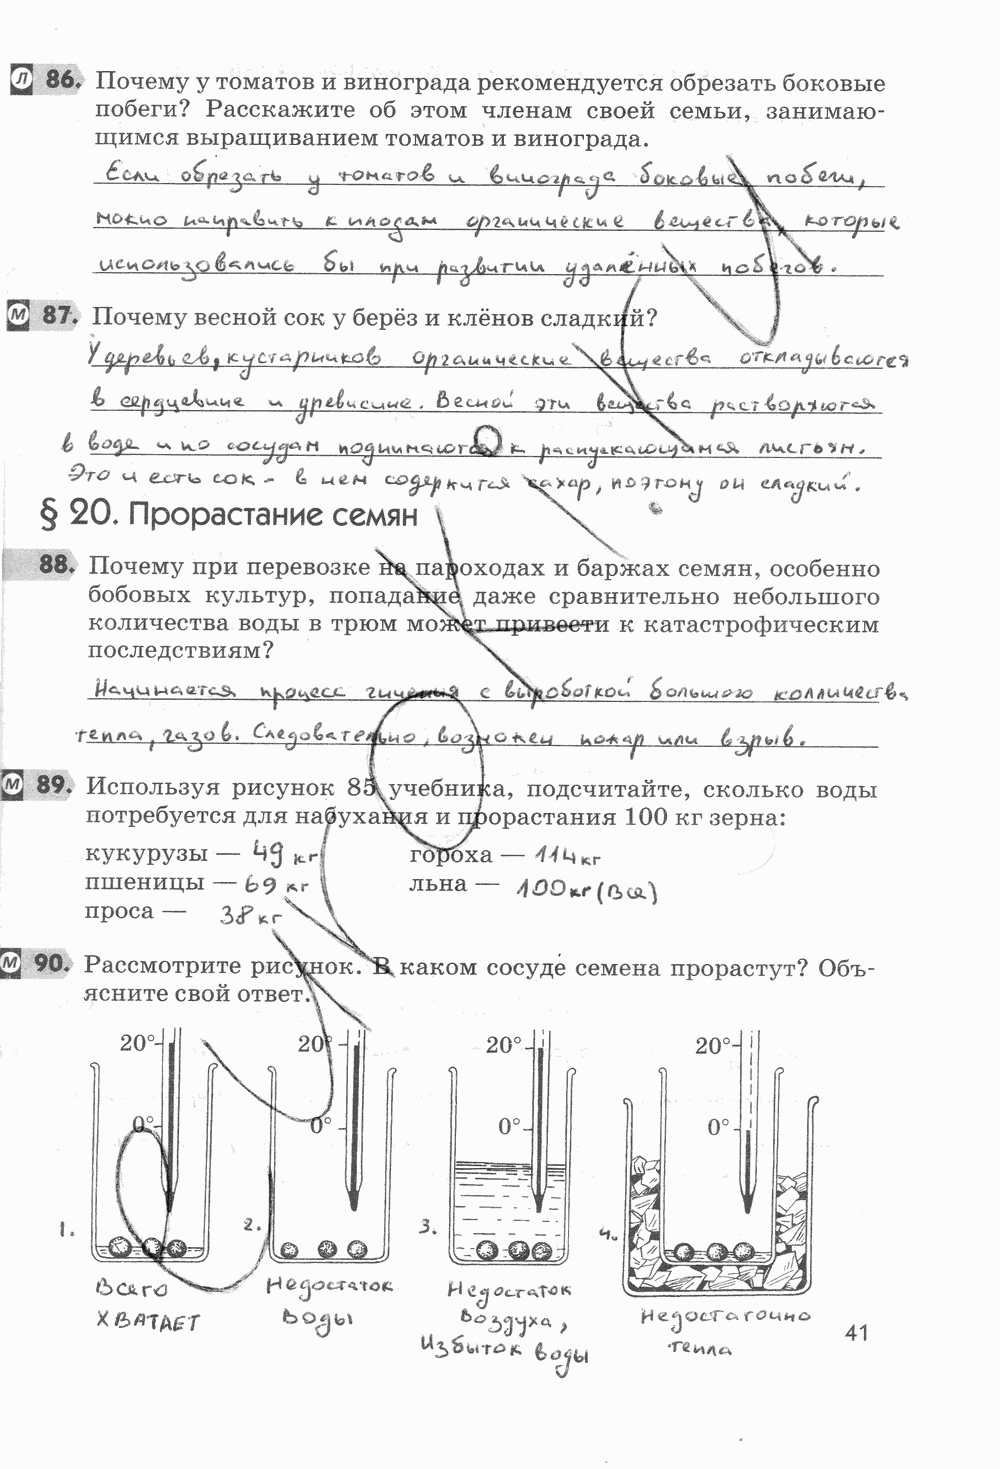 Л 86. Почему у томатов и винограда рекомендуется обрезать боковые
побеги? Расскажите об этом членам своей семьи, занимаю-
щимся выращиванием томатов и винограда.
Если обрезать у томатов и винограда боковые побеги,
можно направить к плодам органические вещества, которые
использовались бы при развитии удалённых побегов.
М 87. Почему весной сок у берёз и клёнов сладкий?
У деревьев, кустарников органические вещества откладываются
в сердцевине и древисине. Весной эти вещества растворяются
в воде и по сосудам поднимаются к распускающимся листьям.
Это и есть сок - в нем содержится сахар, поэтому он сладкий.
§ 20. Прорастание семян
88. Почему при перевозке на пароходах и баржах семян, особенно
бобовых культур, попадание даже сравнительно небольшого
количества воды в трюм может привести к катастрофическим
последствиям?
Начинается процесс гниения с выработкой большого колличества
тепла, газов. Следовательно, возможен пожар или взрыв.
М 89. Используя рисунок 85 учебника, подсчитайте, сколько воды
потребуется для набухания и прорастания 100 кг зерна:
кукурузы — 49 кг гороха — 114 кг
пшеницы — 69 кг льна — 100 кг (Все)
проса — 38 кг
М 90. Рассмотрите рисунок. В каком сосуде семена прорастут? Объ-
ясните свой ответ.
20° 20° 20° 20°
0° 0° 0° 0°
1. 2. 3. 4.
Всего
ХВАТАЕТ
Недостаток
воды
Недостаток
воздуха,
Избыток воды
Недостаточно
тепла
41